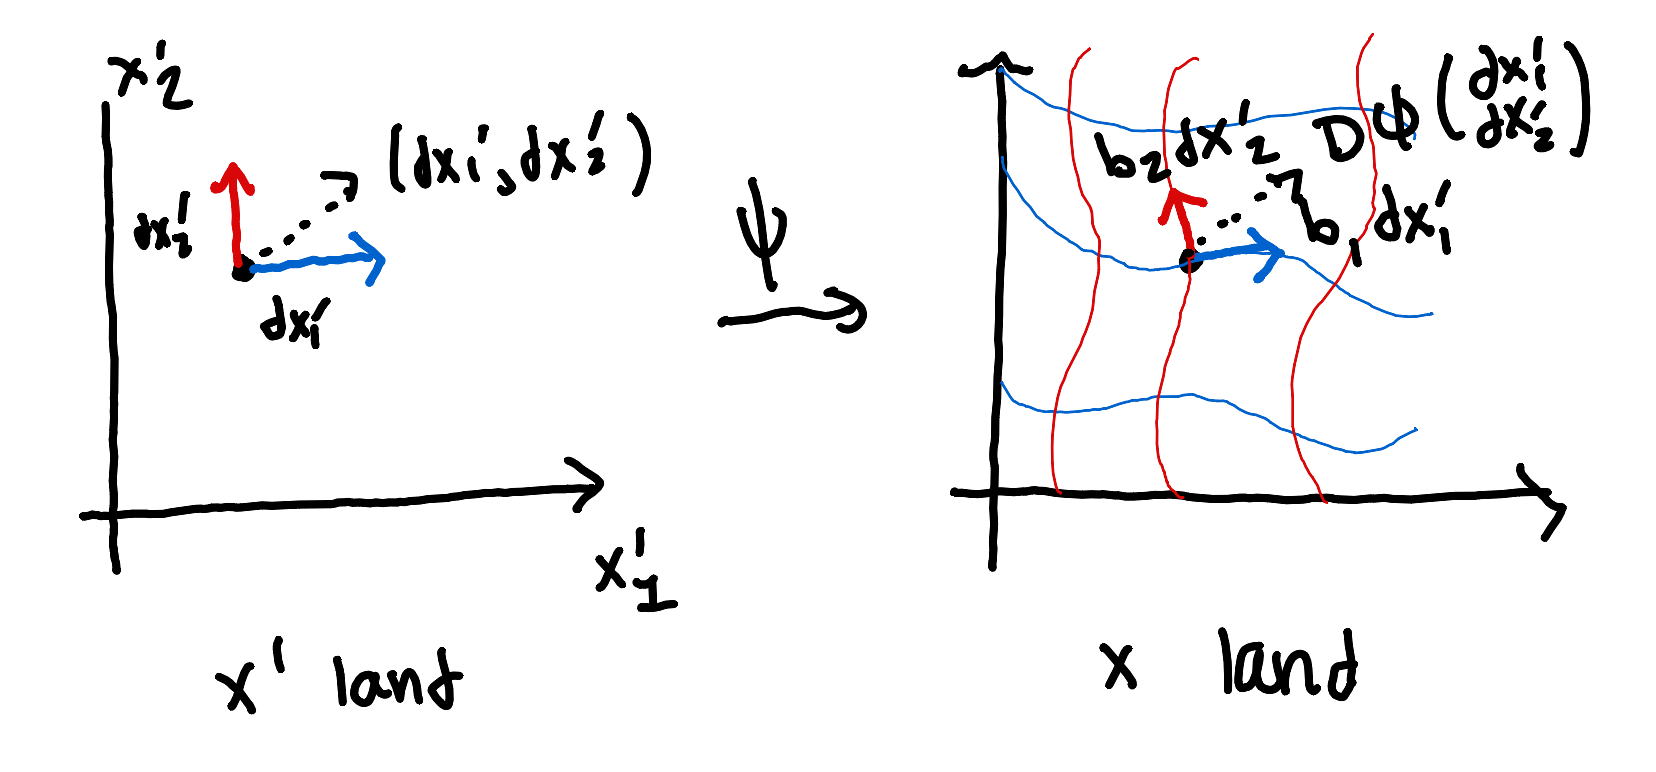 x'2
(dx'1, dx'2)
dx'2
dx'1
x'1
x' land
ψ
Dϕ(dx'1
dx'2)
b2dx'2
b1dx'1
x land